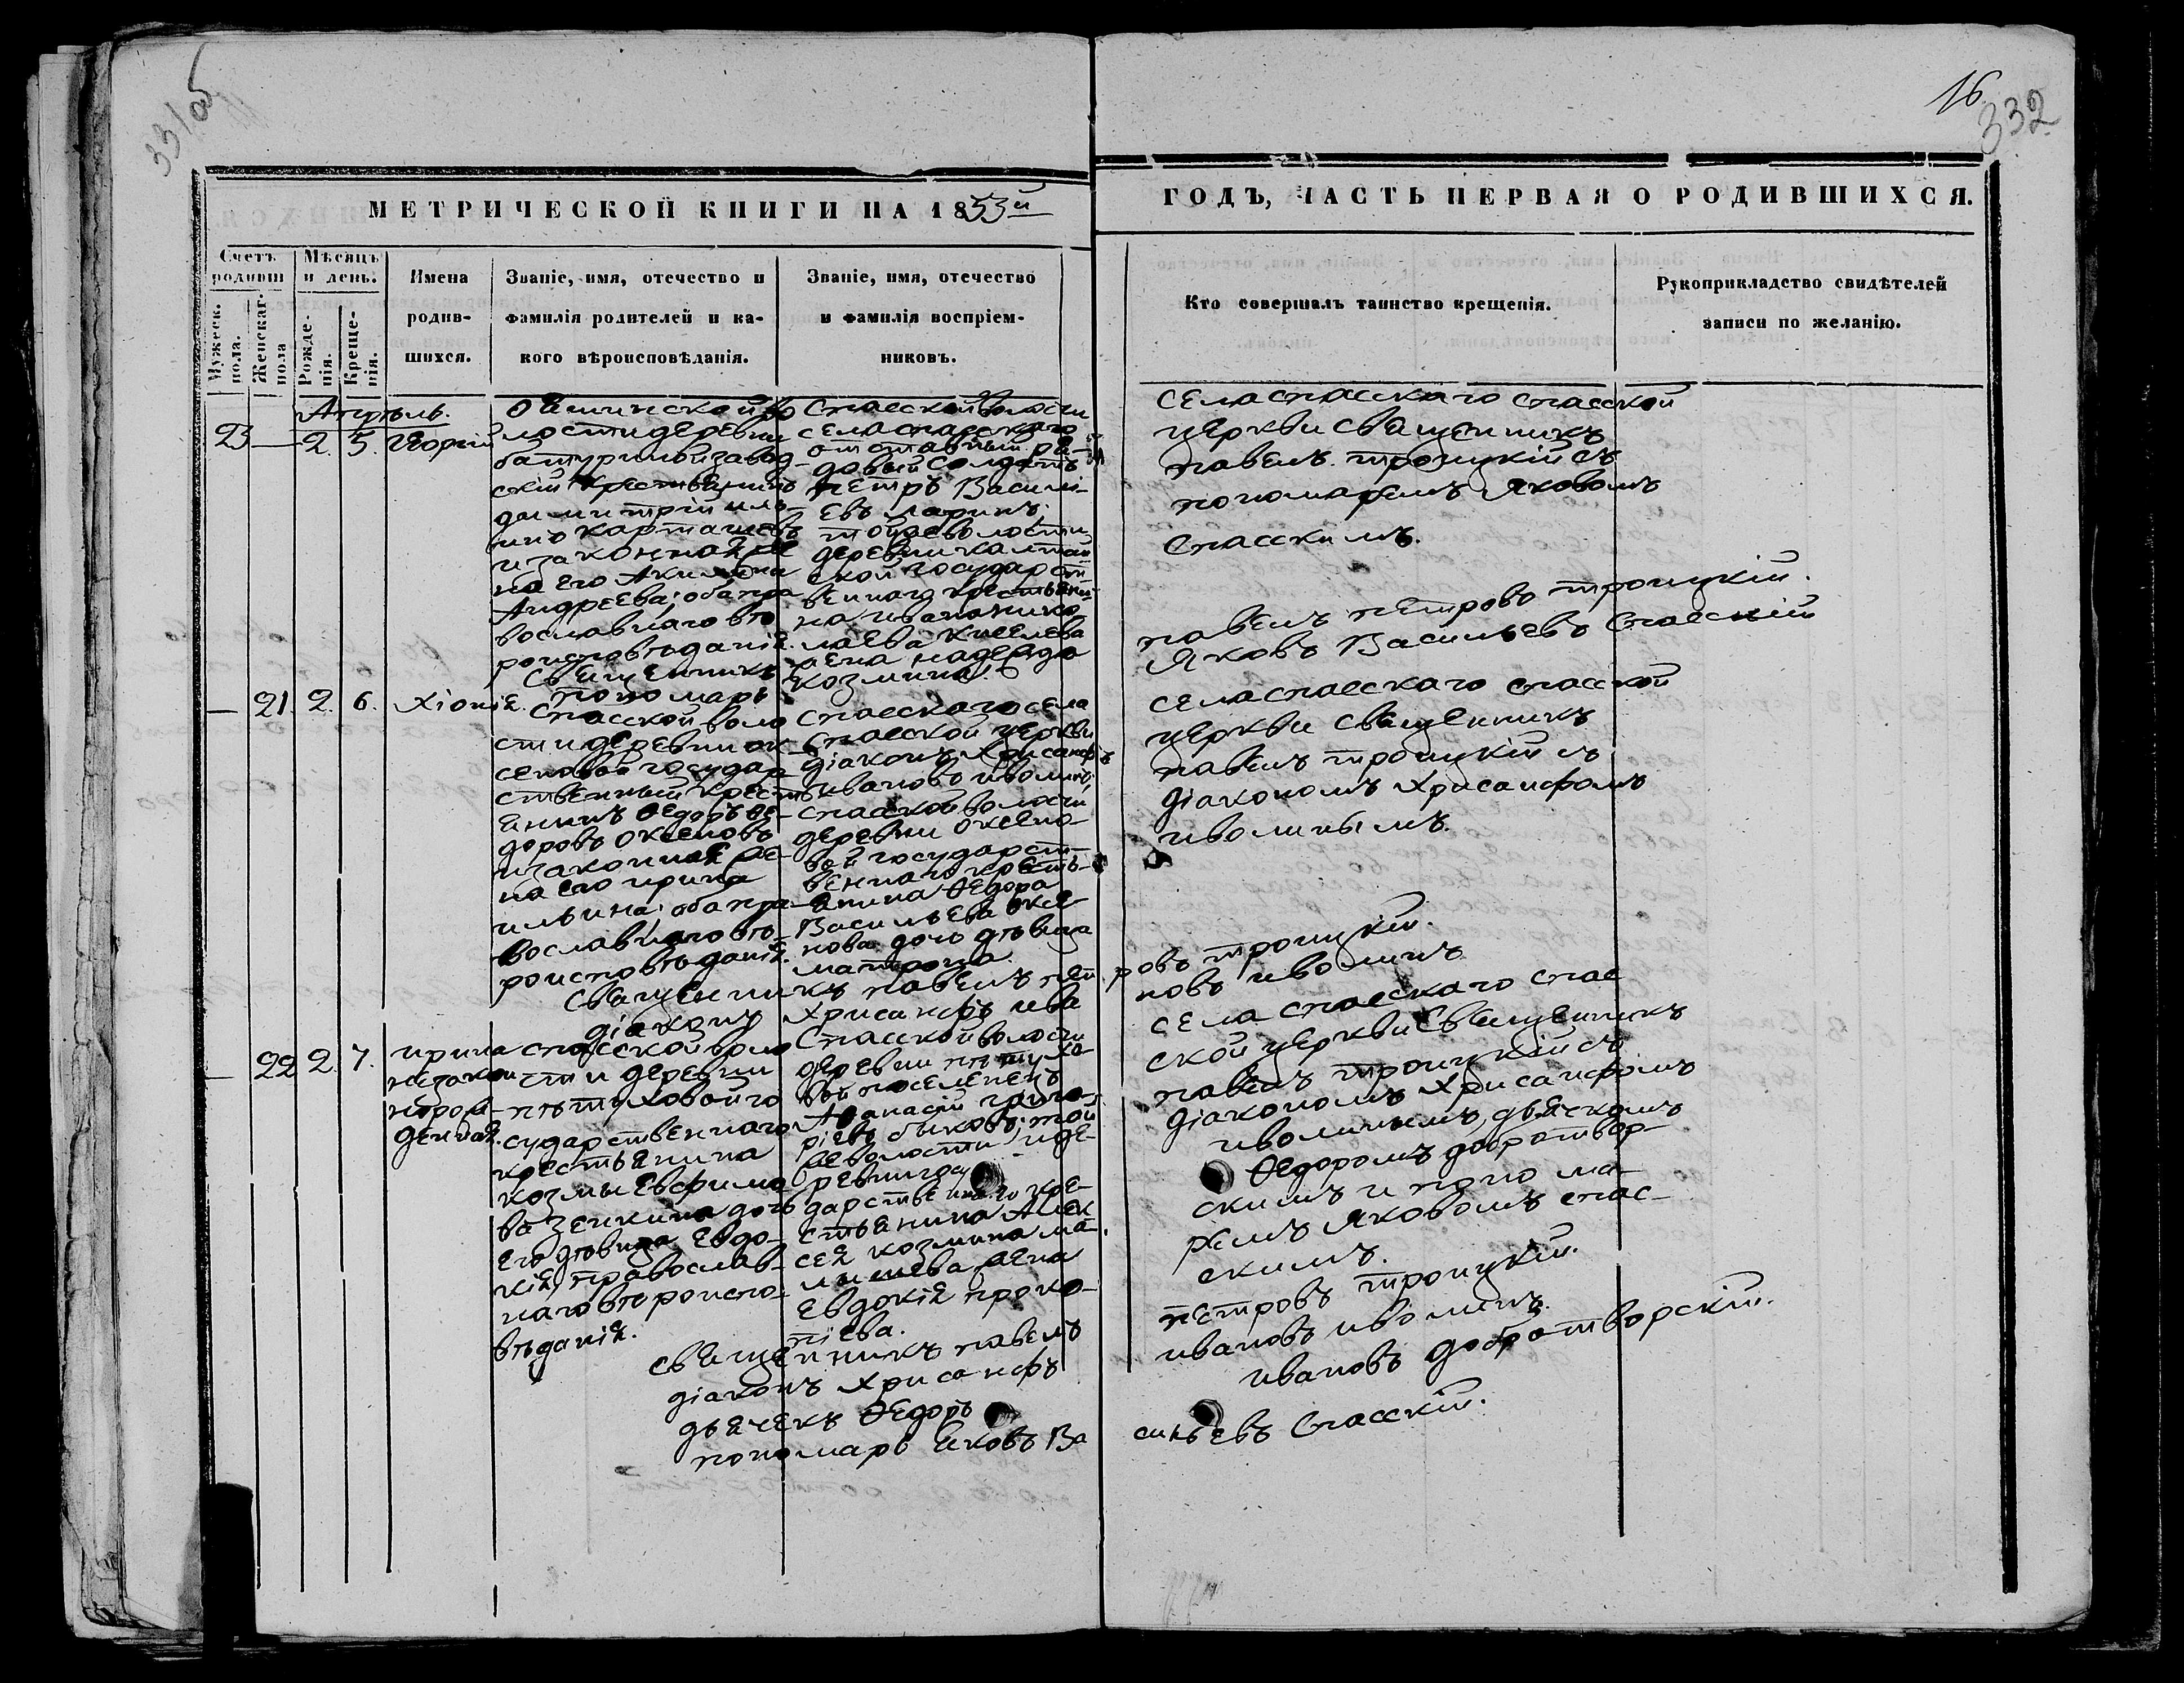 331об
16
332
МЕТРИЧЕСКОЙ КНИГИ НА 1853й
ГОДЪ, ЧАСТЬ ПЕРВАЯ О РОДИВШИХСЯ.
Счетъ родивш
Мужеск. пола.
Женскаг. пола
Мѣсяцъ и день.
Рожде-нія.
Креще-нія.
Имена
родив-
шихся.
Званіе, имя, отечество и
фамилія родителей и ка-
кого вѣроисповѣданія.
Званіе, имя, отечество
и фамилія воспріем-
никовъ.
Кто совершалъ таинство крещенія.
Рукоприкладство свидѣтелей
записи по желанію.
Апрѣль.
23 — 2. 5. Георгій
Ояшинской во
лости деревни
батуриной завод-
скій крестьянинъ
димитрій иль-
инъ карташевъ
и законная же
на его Акилина
Андреева; оба пра
вославнаго вѣ
роисповѣданія.
Спасской волости
села спасскаго
отставный ря-
довый солдатъ
петръ Василі-
евъ ларинъ;
тойже волости
деревни калтай
ской государст
веннаго крестьяни-
на ивана нико
лаева киселева
жена надежда
козмина.
села спасскаго спасской
церкви священникъ
павелъ троицкій съ
пономаремъ Яковомъ
Спасскимъ.
Священникъ
пономарь
павелъ петровъ троицкій.
Яковъ Васильевъ Спасскій
— 21. 2. 6. Хіонія.
спасской воло
сти деревни ок-
сеновой государ
ственный кресть
янинъ Ѳедоръ Ѳе-
доровъ Оксеновъ
и законная же-
на его ирина
ильина; оба пра-
вославнаго вѣ-
роисповѣданія.
Спасскаго села
спасской церкви
діаконъ Хрисанфъ
ивановъ иволинъ;
спасской волости
деревни Оксено-
вой государст-
веннаго кресть-
янина Ѳедора
Васильева Оксе
нова дочь дѣвица
матрона.
села спасскаго спасской
церкви священникъ
павелъ троицкій съ
діакономъ Хрисанфомъ
иволинымъ.
Священникъ павелъ петровъ троицкій.
діаконъ Хрисанфъ ивановъ иволинъ
— 22 2. 7. ирина
незакон
норож-
денная.
спасской воло
сти деревни
пѣтуховой го
сударственнаго
крестьянина
козмы Евфимо
ва зенкина дочь
его дѣвица Евдо-
кія, православ-
наго вѣроиспо-
вѣданія.
Спасской волости
деревни пѣтухо-
вой поселенецъ
Афанасій григо-
ріевъ быковъ; той
же волости и де-
ревни госу
дарственнаго кре-
стьянина Алек
сея козмина ма-
лышева жена
Евдокія проко-
піева.
села спасскаго спас
ской церкви Священникъ
павелъ троицкій съ
діакономъ Хрисанфомъ
иволинымъ, дьячкомъ
Ѳедоромъ добротвор-
скимъ и понома-
ремъ Яковомъ спас-
скимъ.
священникъ павелъ петровъ троицкій.
діаконъ Хрисанфъ ивановъ иволинъ.
дьячекъ Ѳедоръ ивановъ добротворскій.
пономарь Яковъ Васильевъ Спасскій.